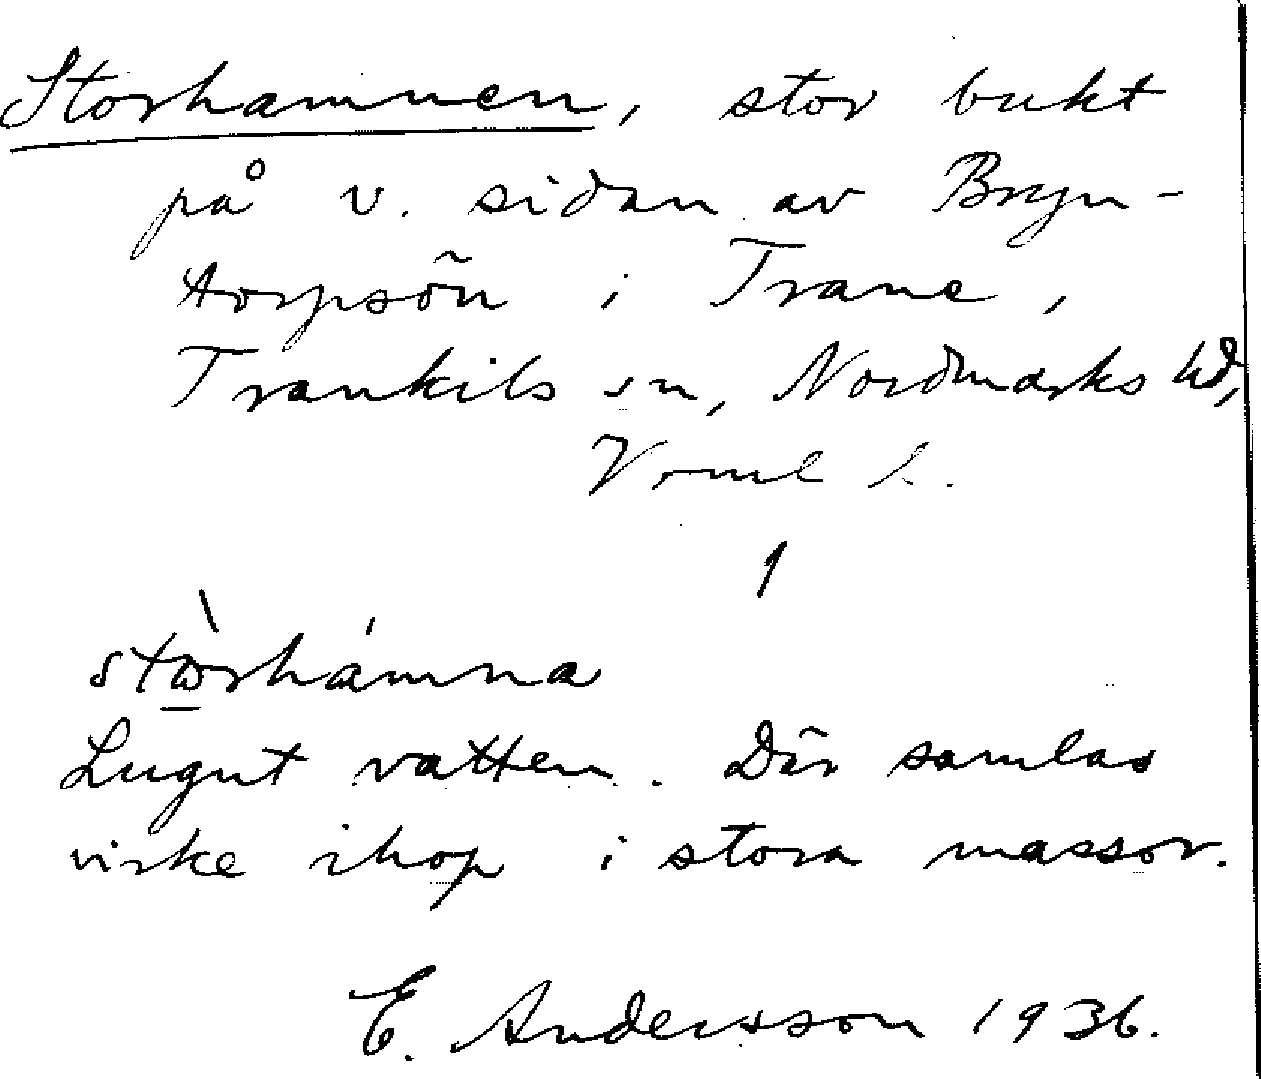 Storhamnen, stor bukt
på v. sidan av Bryn-
torpsön i Trane,
Trankils sn, Nordmarks hd,
Vrml l.
1
stòrhámna
Lugnt vatten. Där samlas
virke ihop i stora massor.
E. Andersson 1936.